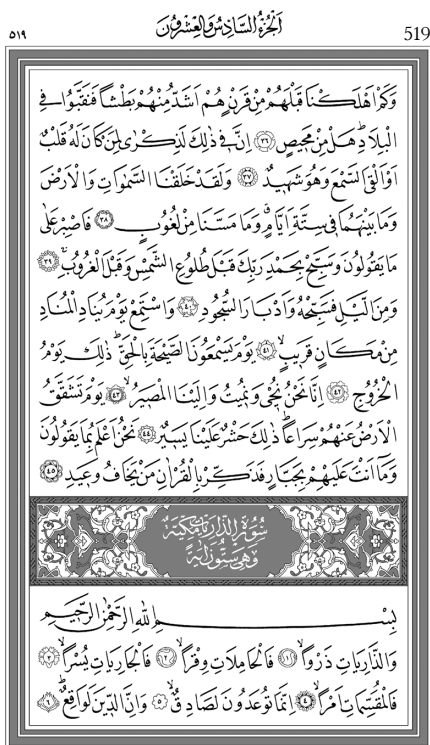 ٥١٩ اَلْجُزْءُ السَّادِسُ وَالْعِشْرُونَ 519
وَكَمْ اَهْلَكْنَا قَبْلَهُمْ مِنْ قَرْنٍ هُمْ اَشَدُّ مِنْهُمْ بَطْشاً فَنَقَّبُوا فِي
الْبِلَادِۜ هَلْ مِنْ مَحِيصٍ ﴿٣٦﴾ اِنَّ فِي ذٰلِكَ لَذِكْرٰى لِمَنْ كَانَ لَهُ قَلْبٌ
اَوْ اَلْقَى السَّمْعَ وَهُوَ شَهِيدٌ ﴿٣٧﴾ وَلَقَدْ خَلَقْنَا السَّمٰوَاتِ وَالْاَرْضَ
وَمَا بَيْنَهُمَا فِي سِتَّةِ اَيَّامٍۗ وَمَا مَسَّنَا مِنْ لُغُوبٍ ﴿٣٨﴾ فَاصْبِرْ عَلٰى
مَا يَقُولُونَ وَسَبِّحْ بِحَمْدِ رَبِّكَ قَبْلَ طُلُوعِ الشَّمْسِ وَقَبْلَ الْغُرُوبِۚ ﴿٣٩﴾
وَمِنَ الَّيْلِ فَسَبِّحْهُ وَاَدْبَارَ السُّجُودِ ﴿٤٠﴾ وَاسْتَمِعْ يَوْمَ يُنَادِ الْمُنَادِ
مِنْ مَكَانٍ قَرِيبٍۙ ﴿٤١﴾ يَوْمَ يَسْمَعُونَ الصَّيْحَةَ بِالْحَقِّۜ ذٰلِكَ يَوْمُ
الْخُرُوجِ ﴿٤٢﴾ اِنَّا نَحْنُ نُحْيِ وَنُمِيتُ وَاِلَيْنَا الْمَصِيرُۙ ﴿٤٣﴾ يَوْمَ تَشَقَّقُ
الْاَرْضُ عَنْهُمْ سِرَاعاًۜ ذٰلِكَ حَشْرٌ عَلَيْنَا يَسِيرٌ ﴿٤٤﴾ نَحْنُ اَعْلَمُ بِمَا يَقُولُونَ
وَمَا اَنْتَ عَلَيْهِمْ بِجَبَّارٍ فَذَكِّرْ بِالْقُرْاٰنِ مَنْ يَخَافُ وَعِيدِ ﴿٤٥﴾
سُورَةُ الذَّارِيَاتِ مَكِّيَّةٌ
وَهِيَ سِتُّونَ اٰيَةً
بِسْمِ اللّٰهِ الرَّحْمٰنِ الرَّحِيمِ
وَالذَّارِيَاتِ ذَرْواًۙ ﴿١﴾ فَالْحَامِلَاتِ وِقْراًۙ ﴿٢﴾ فَالْجَارِيَاتِ يُسْراًۙ ﴿٣﴾
فَالْمُقَسِّمَاتِ اَمْراًۙ ﴿٤﴾ اِنَّمَا تُوعَدُونَ لَصَادِقٌۙ ﴿٥﴾ وَاِنَّ الدِّينَ لَوَاقِعٌۜ ﴿٦﴾